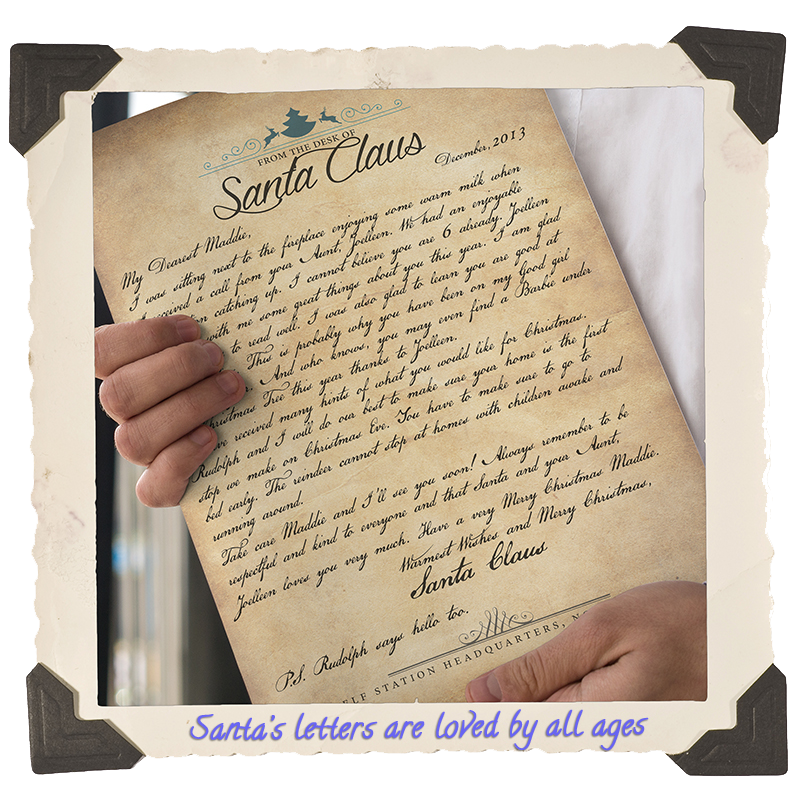 FROM THE DESK OF
Santa Claus
December, 2013
My Dearest Maddie,
I was sitting next to the fireplace enjoying some warm milk when
I received a call from your Aunt, Joelleen. We had an enjoyable
catching up. I cannot believe you are 6 already. Joelleen
with me some great things about you this year. I am glad
to read well. I was also glad to learn you are good at
This is probably why you have been on my good girl
And who knows, you may even find a Barbie under
Christmas Tree this year thanks to Joelleen.
received many hints of what you would like for Christmas.
Rudolph and I will do our best to make sure your home is the first
stop we make on Christmas Eve. You have to make sure to go to
bed early. The reindeer cannot stop at homes with children awake and
running around.
Take care Maddie and I'll see you soon! Always remember to be
respectful and kind to everyone and that Santa and your Aunt,
Joelleen loves you very much. Have a very Merry Christmas Maddie.
Warmest Wishes and Merry Christmas,
Santa Claus
P.S. Rudolph says hello too.
ELF STATION HEADQUARTERS,
Santa's letters are loved by all ages